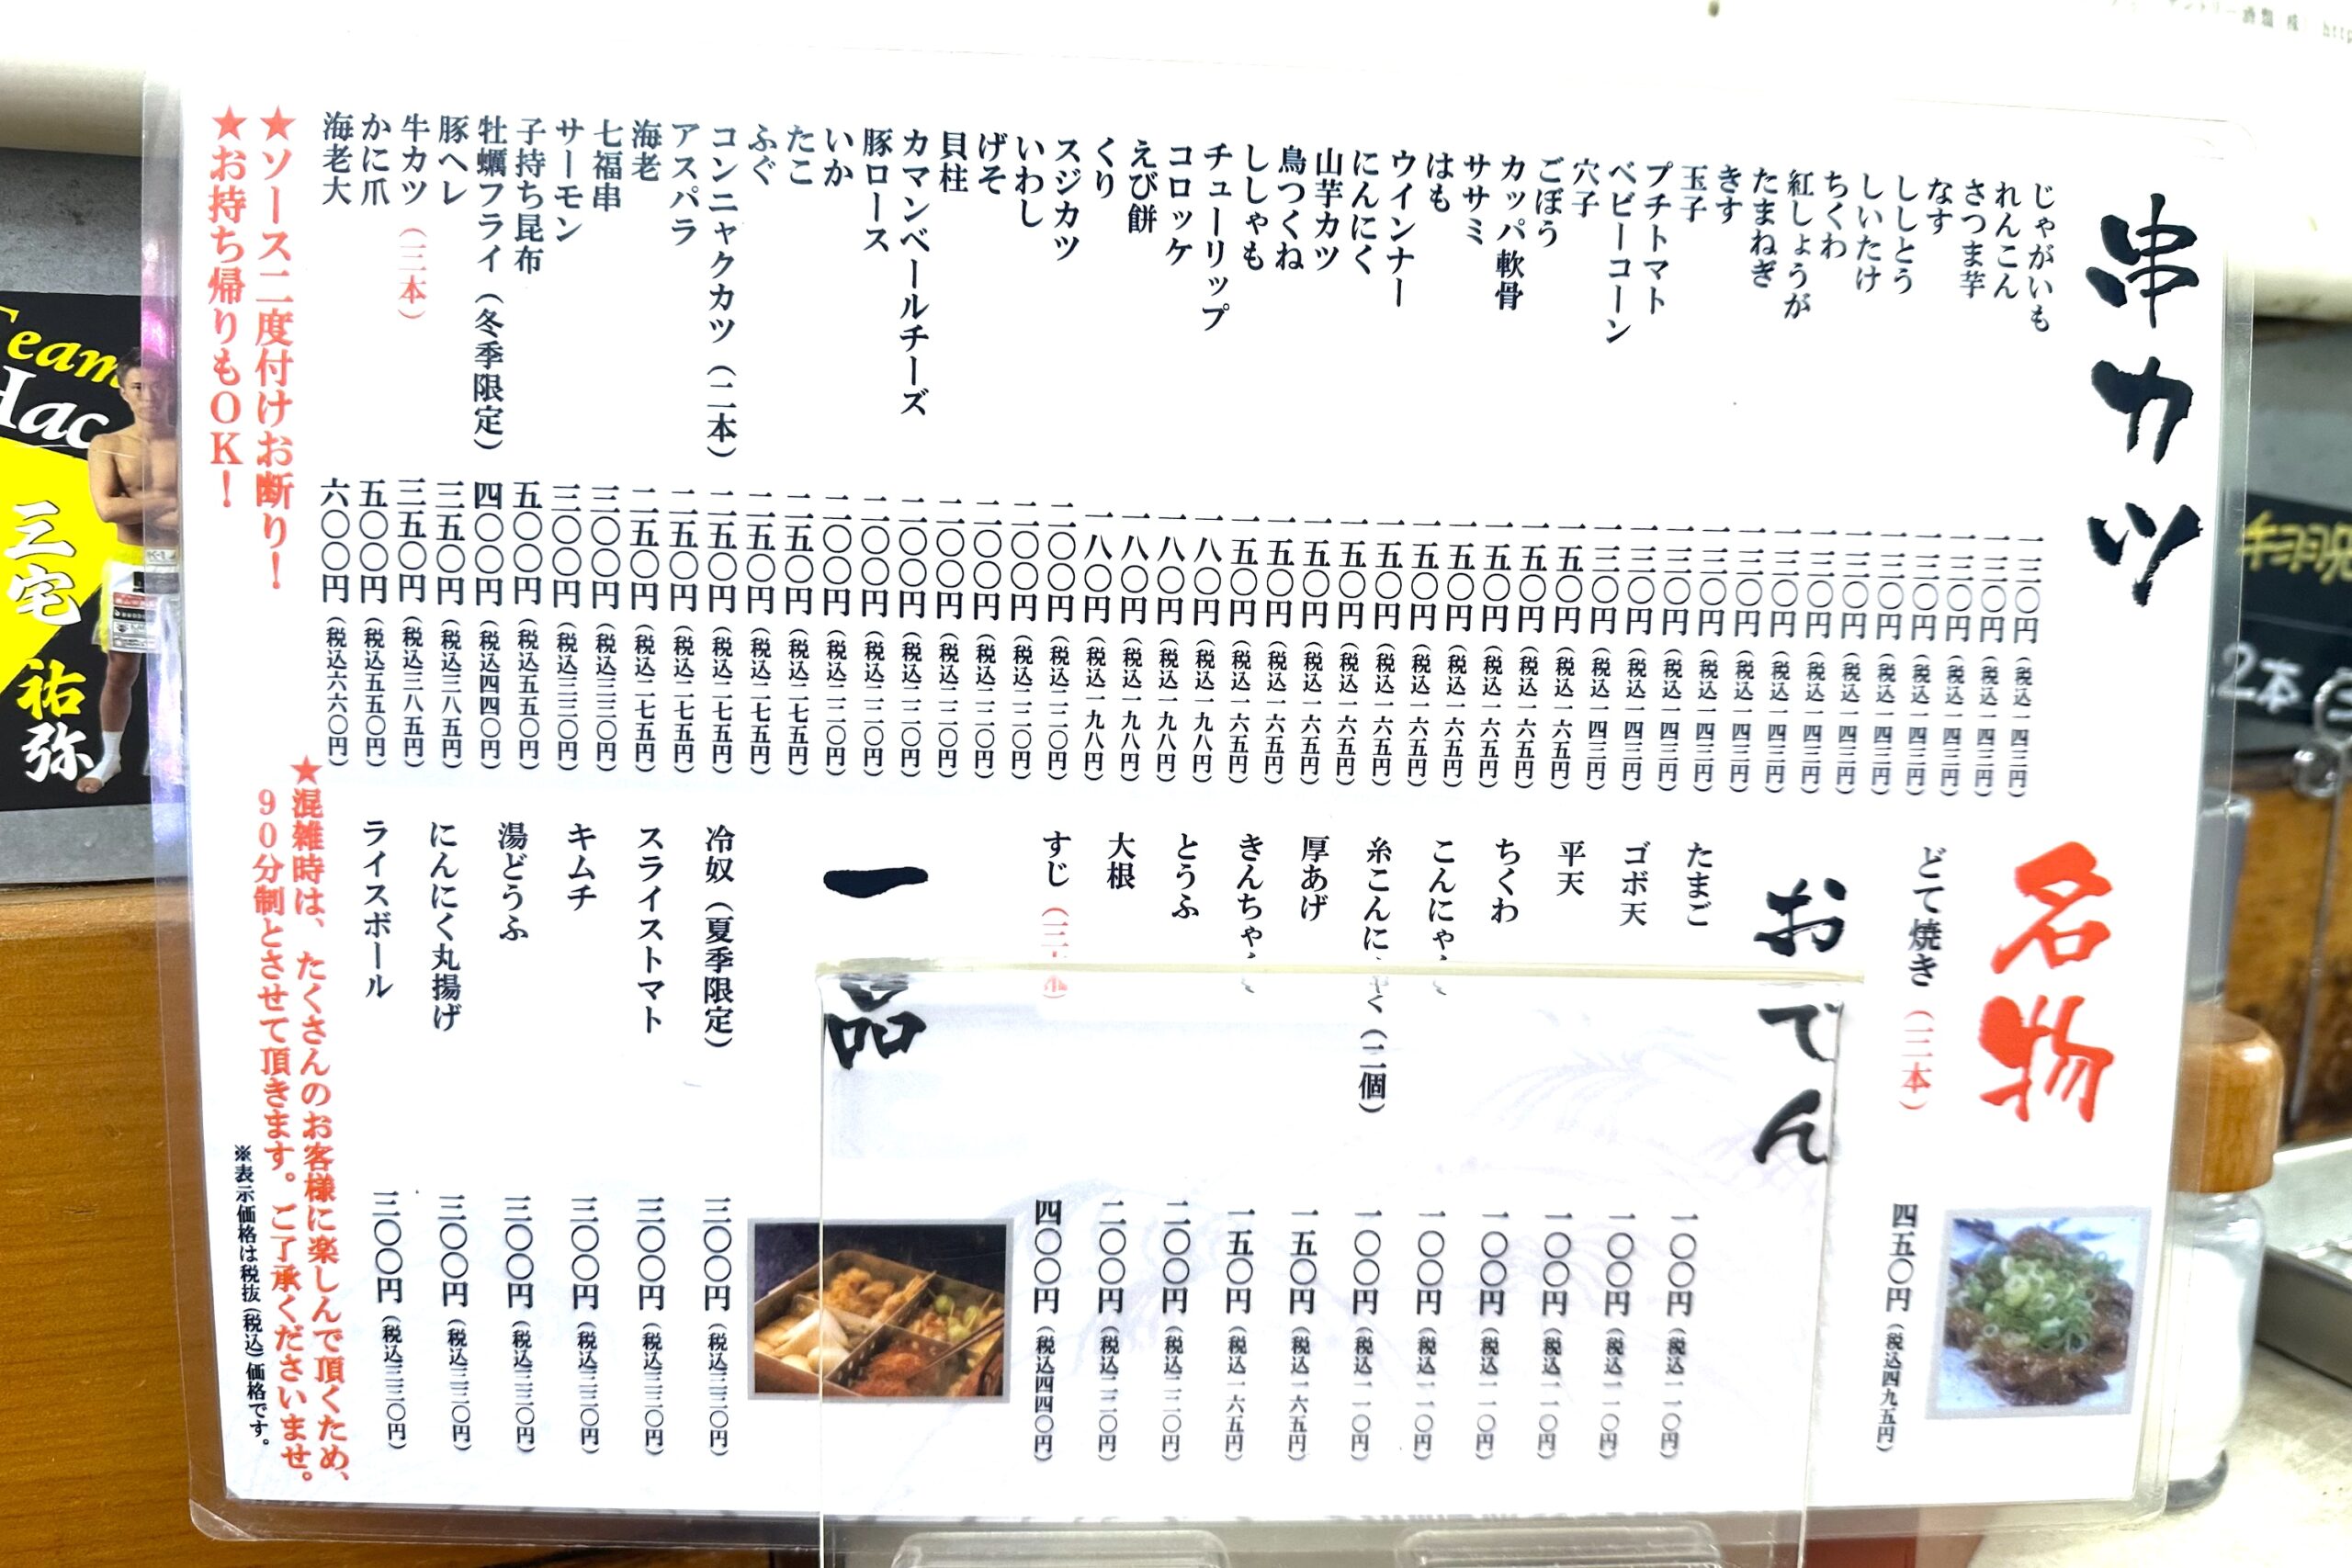 串カツ
じゃがいも 一三〇円（税込一四三円）
れんこん 一三〇円（税込一四三円）
さつま芋 一三〇円（税込一四三円）
なす 一三〇円（税込一四三円）
ししとう 一三〇円（税込一四三円）
しいたけ 一三〇円（税込一四三円）
ちくわ 一三〇円（税込一四三円）
紅しょうが 一三〇円（税込一四三円）
たまねぎ 一三〇円（税込一四三円）
きす 一三〇円（税込一四三円）
玉子 一三〇円（税込一四三円）
プチトマト 一三〇円（税込一四三円）
ベビーコーン 一三〇円（税込一四三円）
穴子 一五〇円（税込一六五円）
ごぼう 一五〇円（税込一六五円）
カッパ軟骨 一五〇円（税込一六五円）
ササミ 一五〇円（税込一六五円）
はも 一五〇円（税込一六五円）
ウインナー 一五〇円（税込一六五円）
にんにく 一五〇円（税込一六五円）
山芋カツ 一五〇円（税込一六五円）
鳥つくね 一五〇円（税込一六五円）
ししゃも 一五〇円（税込一六五円）
チューリップ 一八〇円（税込一九八円）
コロッケ 一八〇円（税込一九八円）
えび餅 一八〇円（税込一九八円）
くり 一八〇円（税込一九八円）
スジカツ 二〇〇円（税込二二〇円）
いわし 二〇〇円（税込二二〇円）
げそ 二〇〇円（税込二二〇円）
貝柱 二〇〇円（税込二二〇円）
カマンベールチーズ 二〇〇円（税込二二〇円）
豚ロース 二〇〇円（税込二二〇円）
いか 二〇〇円（税込二二〇円）
たこ 二五〇円（税込二七五円）
ふぐ 二五〇円（税込二七五円）
コンニャクカツ（二本） 二五〇円（税込二七五円）
アスパラ 二五〇円（税込二七五円）
海老 二五〇円（税込二七五円）
七福串 三〇〇円（税込三三〇円）
サーモン 三〇〇円（税込三三〇円）
子持ち昆布 五〇〇円（税込五五〇円）
牡蠣フライ（冬季限定） 四〇〇円（税込四四〇円）
豚ヘレ 三五〇円（税込三八五円）
牛カツ（三本） 三五〇円（税込三八五円）
かに爪 五〇〇円（税込五五〇円）
海老大 六〇〇円（税込六六〇円）
★ソース二度付けお断り！
★お持ち帰りもOK！
名物
どて焼き（三本） 四五〇円（税込四九五円）
おでん
たまご 一〇〇円（税込一一〇円）
ゴボ天 一〇〇円（税込一一〇円）
平天 一〇〇円（税込一一〇円）
ちくわ 一〇〇円（税込一一〇円）
こんにゃく 一〇〇円（税込一一〇円）
糸こんにゃく（二個） 一〇〇円（税込一一〇円）
厚あげ 一五〇円（税込一六五円）
きんちゃく 一五〇円（税込一六五円）
とうふ 二〇〇円（税込二二〇円）
大根 二〇〇円（税込二二〇円）
すじ（三本） 四〇〇円（税込四四〇円）
一品
冷奴（夏季限定） 三〇〇円（税込三三〇円）
スライストマト 三〇〇円（税込三三〇円）
キムチ 三〇〇円（税込三三〇円）
湯どうふ 三〇〇円（税込三三〇円）
にんにく丸揚げ 三〇〇円（税込三三〇円）
ライスボール 三〇〇円（税込三三〇円）
★混雑時は、たくさんのお客様に楽しんで頂くため、
90分制とさせて頂きます。ご了承くださいませ。
※表示価格は税抜（税込）価格です。
Team
Hac
三宅
祐弥
2本